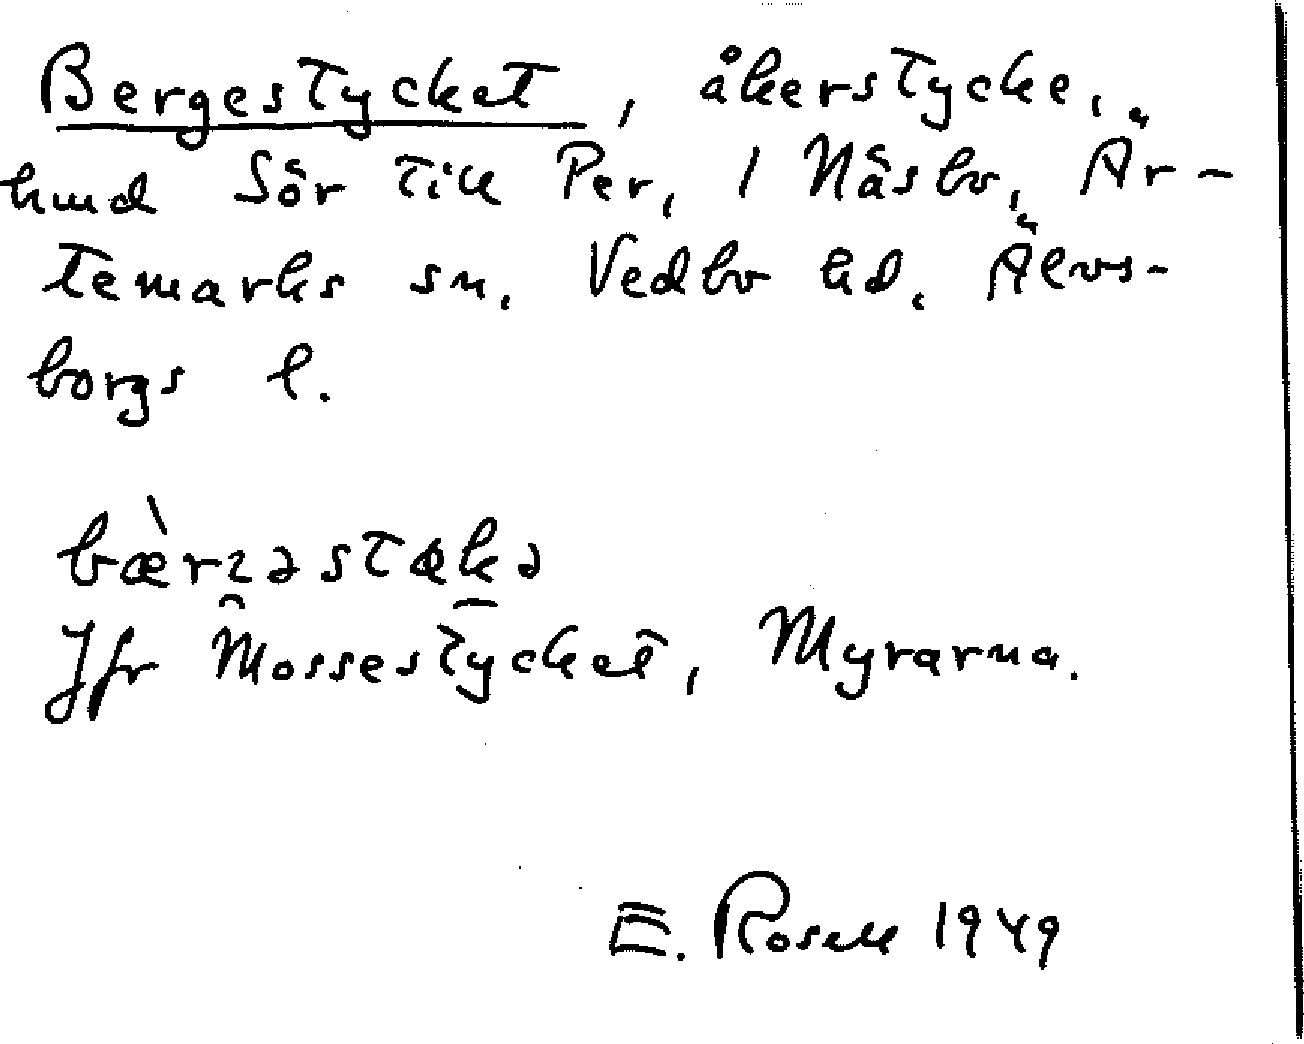 Bergestycket, åkerstycke,
hmd Sör till Per, 1 Näsbo, Är-
temarks sn. Vedbo hd. Älvs-
borgs l.
Jfr Mossestycket, Myrarna.
E. Rosell 1949